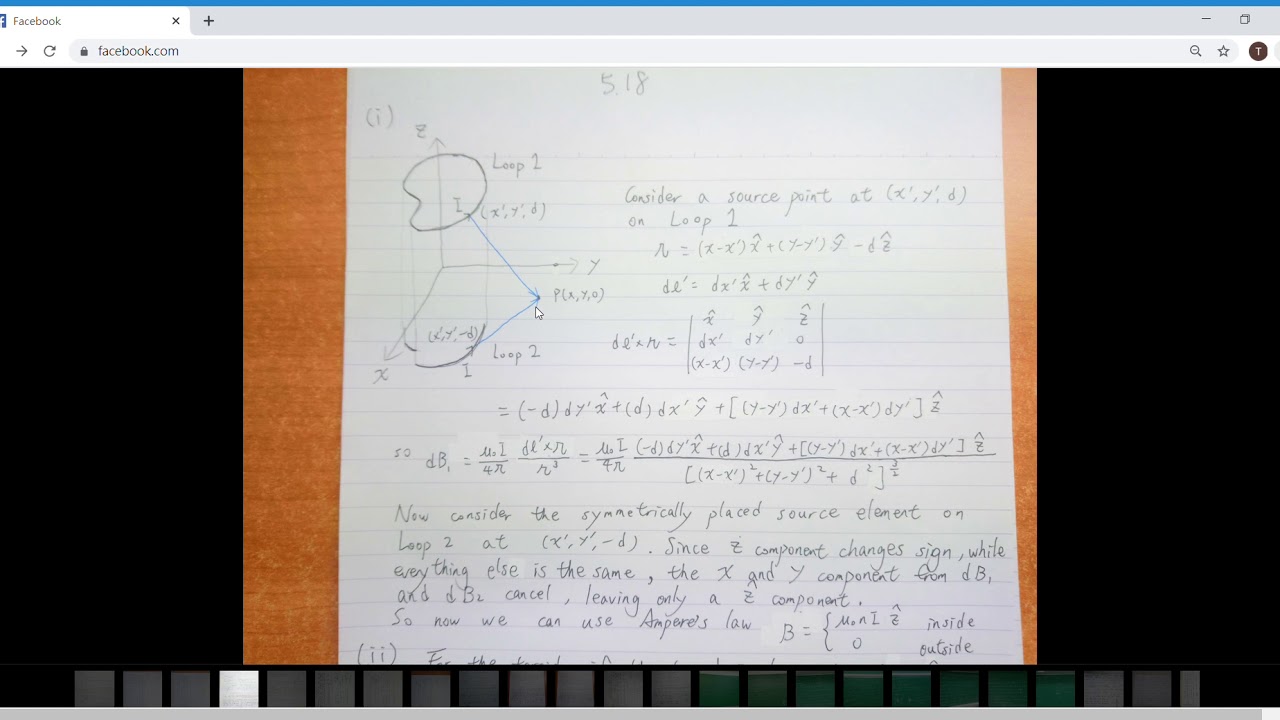 Facebook
facebook.com
T
5.18
(i)
Z
Loop 1
I
(x', y', d)
Consider a source point at (x', y', d)
on Loop 1
Y
r = (x-x')x̂ + (y-y')ŷ - dẑ
dl' = dx'x̂ + dy'ŷ
P(x, y, 0)
(x', y', -d)
Loop 2
X
I
dl'×r = | x̂ ŷ ẑ |
| dx' dy' 0 |
| (x-x') (y-y') -d |
= (-d)dy'x̂ + (d)dx'ŷ + [(y-y')dx' + (x-x')dy']ẑ
so dB₁ = μ₀I/4π dl'×r/r³ = μ₀I/4π (-d)dy'x̂ + (d)dx'ŷ + [(y-y')dx' + (x-x')dy']ẑ / [(x-x')² + (y-y')² + d²]^3/2
Now consider the symmetrically placed source element on
Loop 2 at (x', y', -d). Since z component changes sign, while
everything else is the same, the x and y component from dB₁
and dB₂ cancel, leaving only a ẑ component.
So now we can use Ampere's law B = { μ₀nIẑ inside
0 outside
(ii) For the